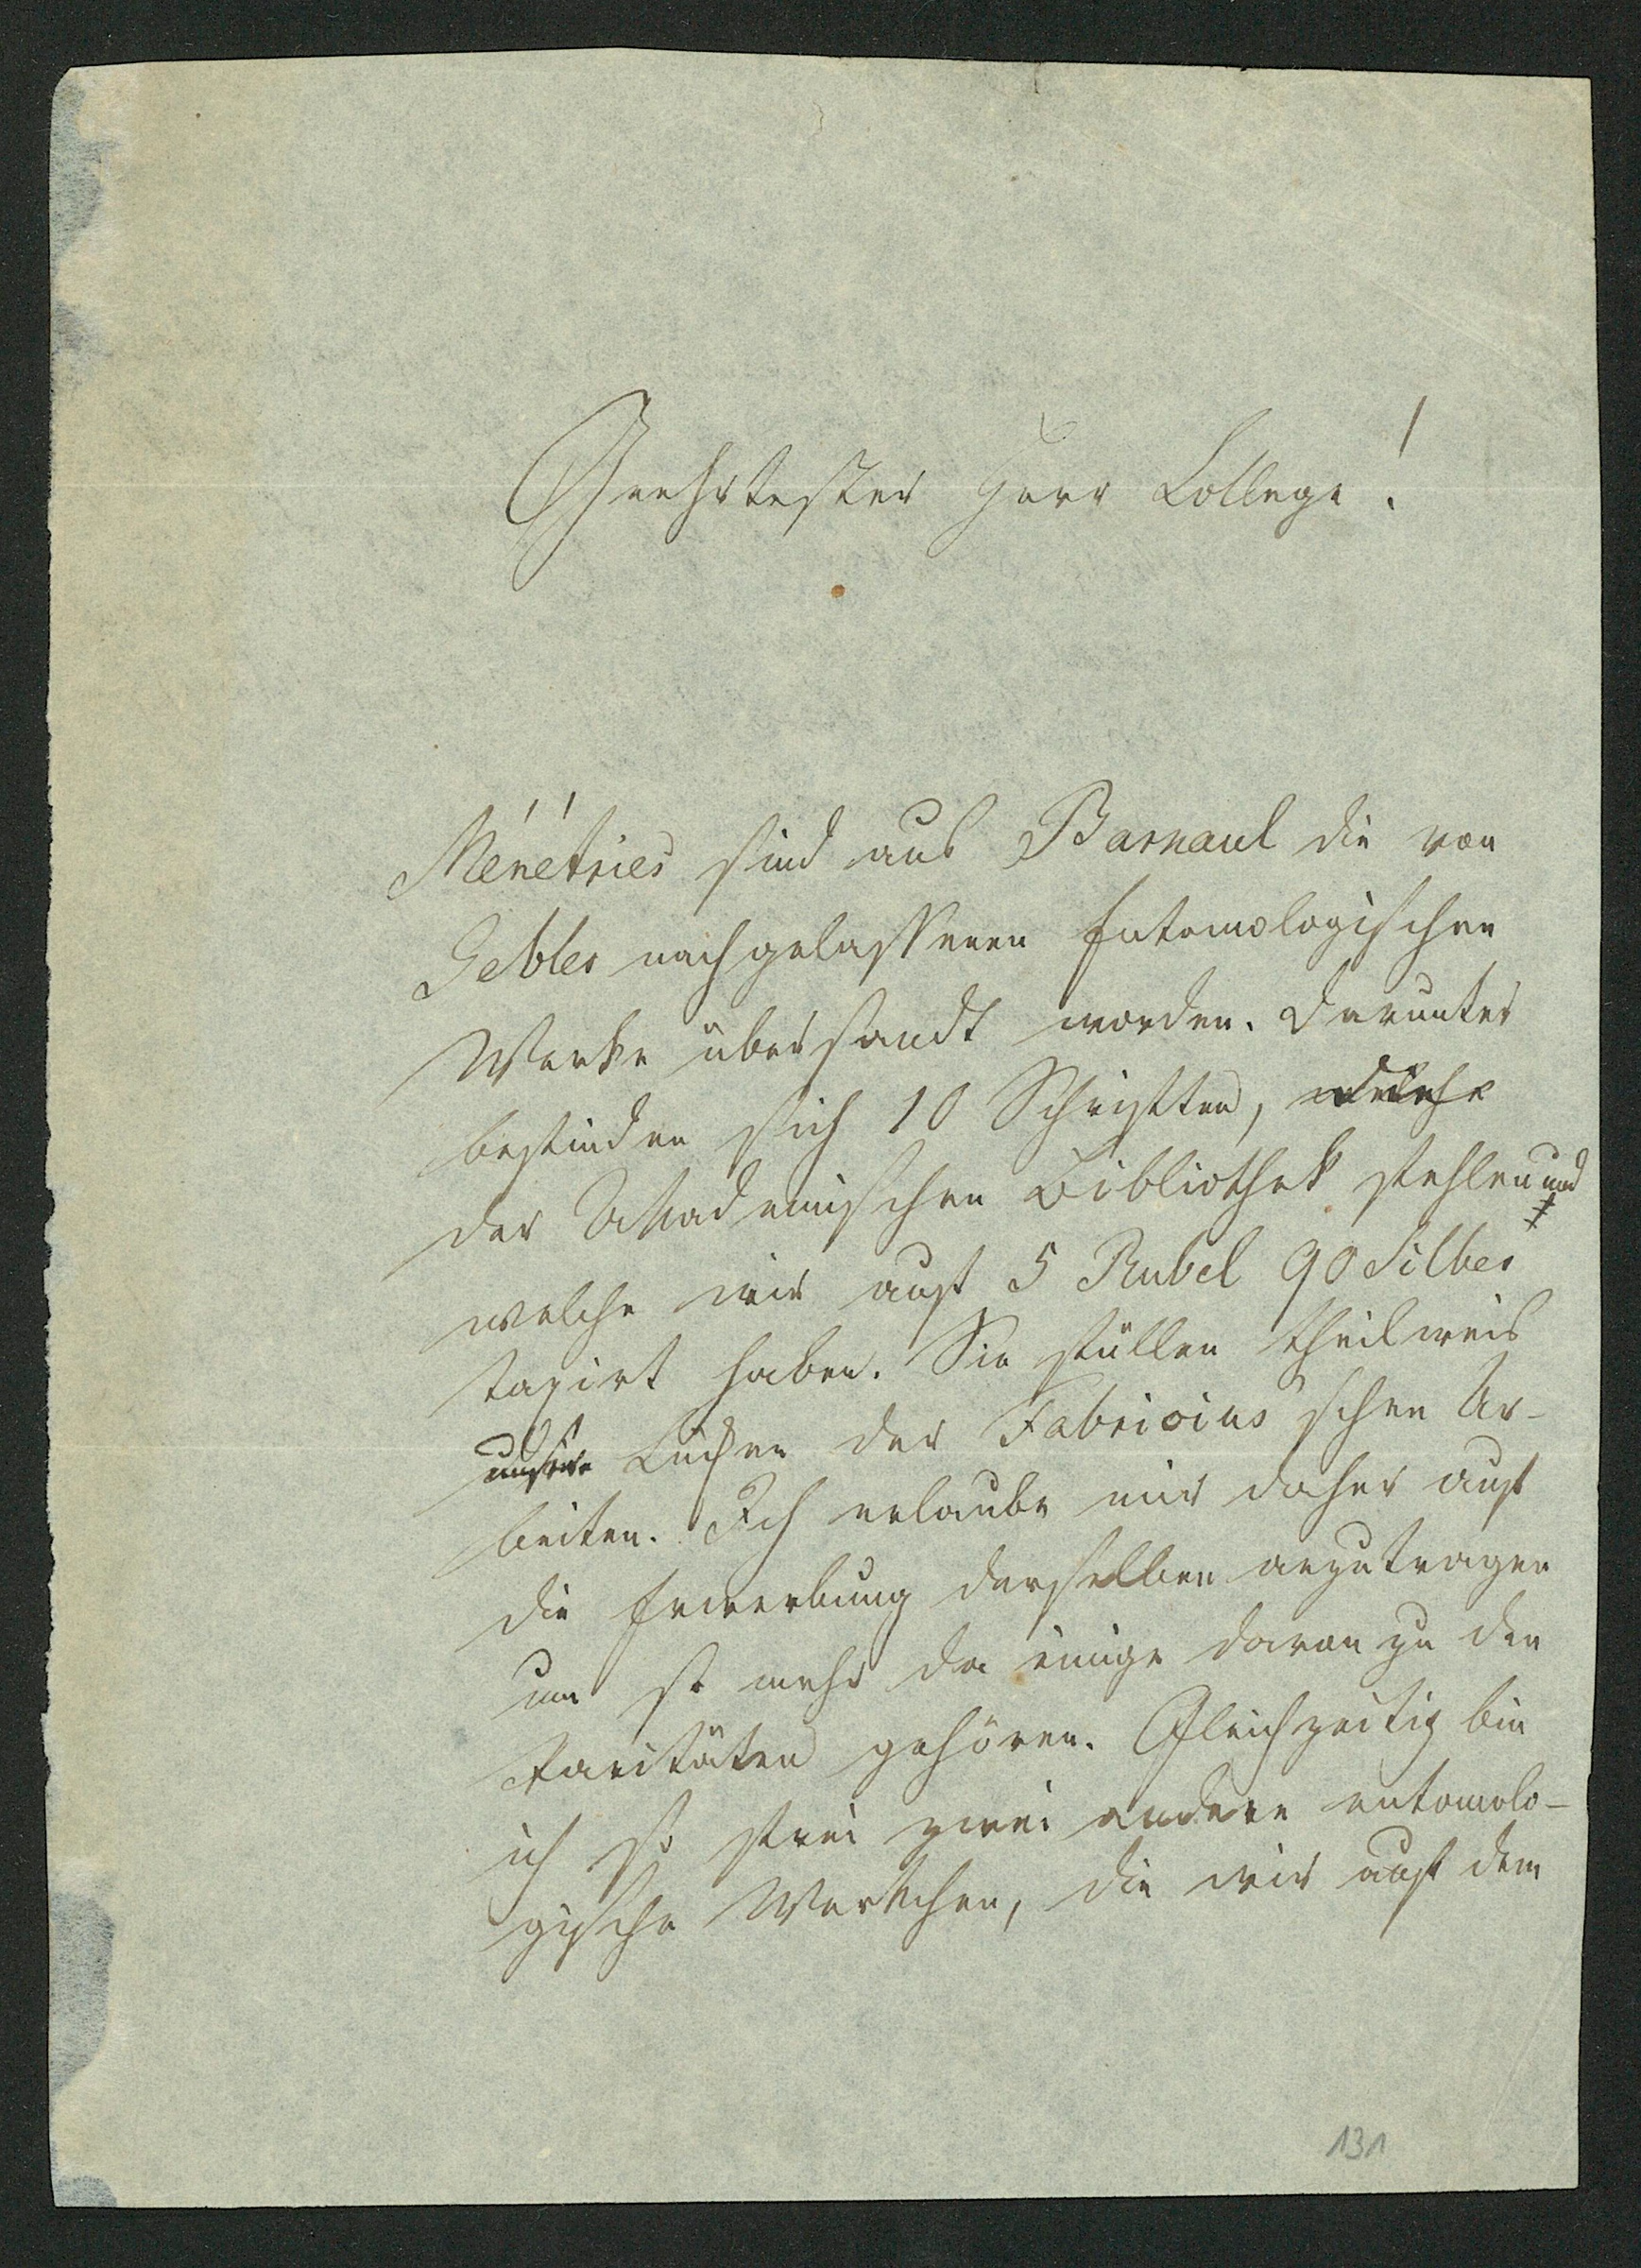 Geehrtester Herr College!
Ménétries sind aus Barnaul die von
Gebler nachgelassenen Entomologischen
Werke übersandt worden. Darunter
befinden sich 10 Schriften, welche
der Akademischen Bibliothek fehlen und
welche wir auf 5 Rubel 90 Silber
taxirt haben. Sie füllen theilweis
unsere Lücken der Fabricius'schen Ar-
beiten. Ich erlaube mir daher auf
die Erwerbung derselben anzutragen
um so mehr da einige davon zu den
Raritäten gehören. Gleichzeitig bin
ich so frei zwei andere entomolo-
gische Werkchen, die wir auf dem
131